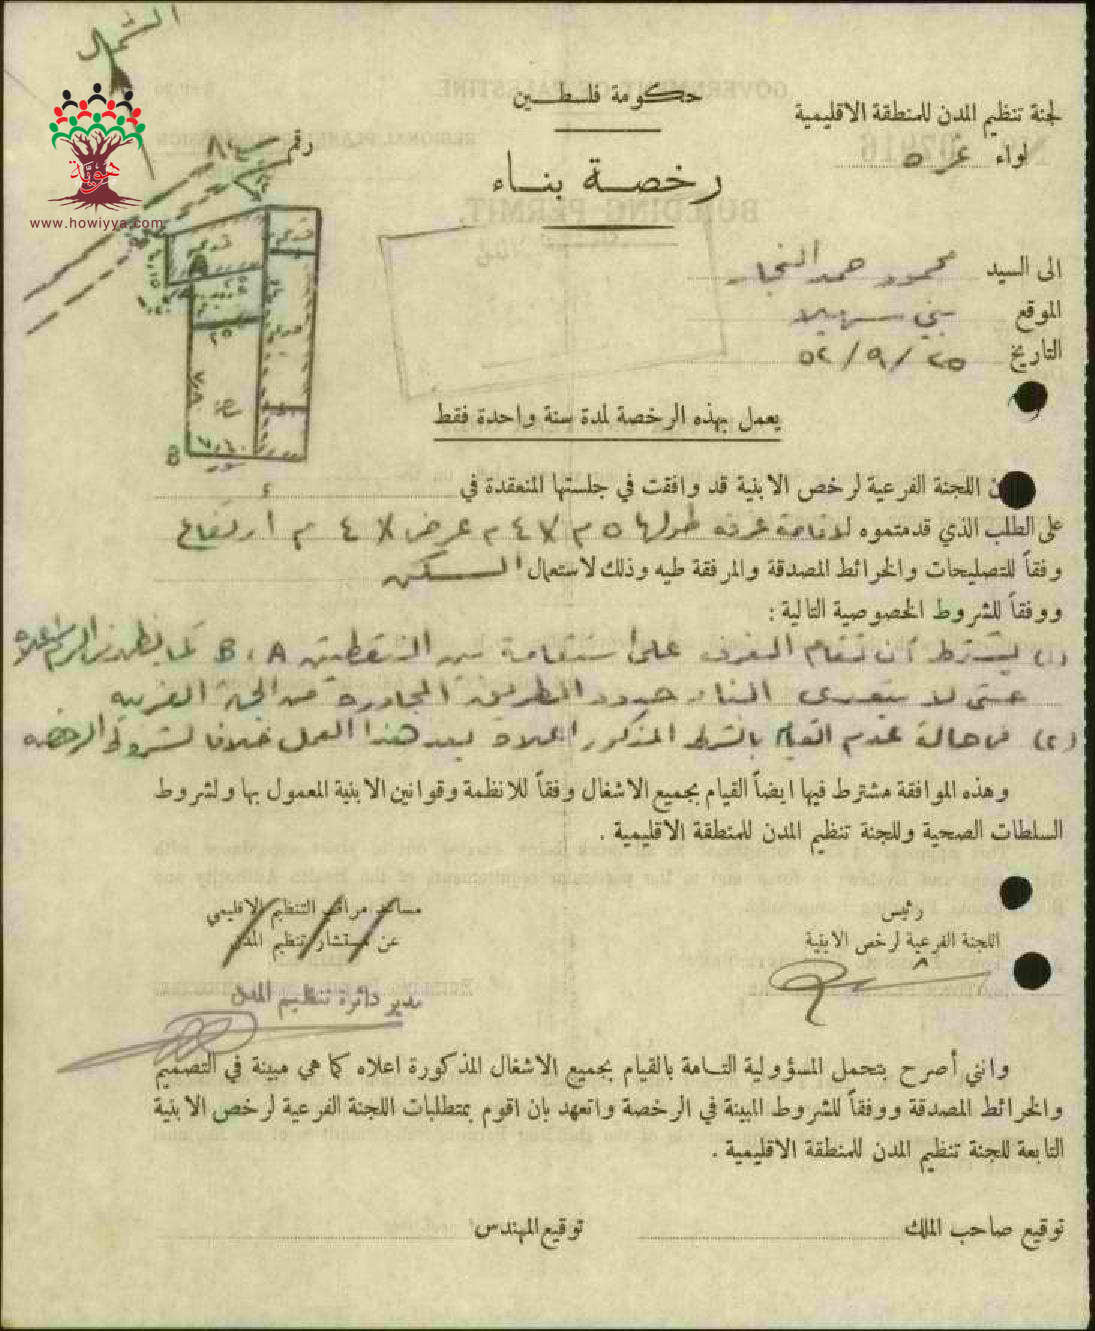 الشمال
حكومة فلسطين
لجنة تنظيم المدن للمنطقة الاقليمية
لواء غزه
رخصة بناء
رقم
هوية
www.howiyya.com
A
B
الى السيد محمود حمد النجار
الموقع بني سهيلا
التاريخ ٢٥/٩/٥٢
يعمل بهذه الرخصة لمدة سنة واحدة فقط
اللجنة الفرعية لرخص الابنية قد وافقت في جلستها المنعقدة في
على الطلب الذي قدمتموه لاقامة غرفه طولها ٥ م X ٤ م عرض X ٤ م ارتفاع
وفقاً للتصليحات والخرائط المصدقة والمرفقة طيه وذلك لاستعمال السكن
ووفقاً للشروط الخصوصية التالية :
(١) يشترط ان تقام الغرف على استقامة بين النقطتين A ، B كما يظهر بالرسم اعلاه
حتى لا يتعدى البناء حدود الطريق المجاورة من الجهة الغربيه
(٢) في حالة عدم القيام بالشرط المذكور اعلاه يعد هذا العمل خلافا لشروط الرخصه
وهذه الموافقة مشترط فيها ايضاً القيام بجميع الاشغال وفقاً للانظمة وقوانين الابنية المعمول بها ولشروط
السلطات الصحية وللجنة تنظيم المدن للمنطقة الاقليمية .
رئيس
اللجنة الفرعية لرخص الابنية
مساعد مراقب التنظيم الاقليمي
عن مستشار تنظيم المدن
مدير دائرة تنظيم المدن
وانني أصرح بتحمل المسؤولية التامة بالقيام بجميع الاشغال المذكورة اعلاه كما هي مبينة في التصميم
والخرائط المصدقة ووفقاً للشروط المبينة في الرخصة واتعهد بان اقوم بمتطلبات اللجنة الفرعية لرخص الابنية
التابعة للجنة تنظيم المدن للمنطقة الاقليمية .
توقيع صاحب الملك
توقيع المهندس